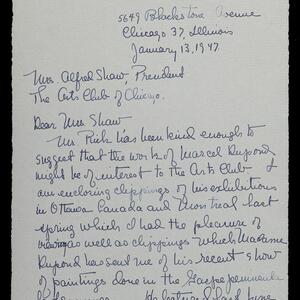 5649 Blackstone Avenue
Chicago 37, Illinois
January 13, 1947.
Mrs. Alfred Shaw, President
The Arts Club of Chicago.
Dear Mrs Shaw
Mr Rich has been kind enough to
suggest that the work of Marcel Dupond
might be of interest to the Arts Club. I
am enclosing clippings of his exhibitions
in Ottawa Canada and Montreal last
spring which I had the pleasure of
viewing as well as clippings which Madame
Dupond has sent me of his recent show
of paintings done in the Gaspe peninsula
He lectured last June